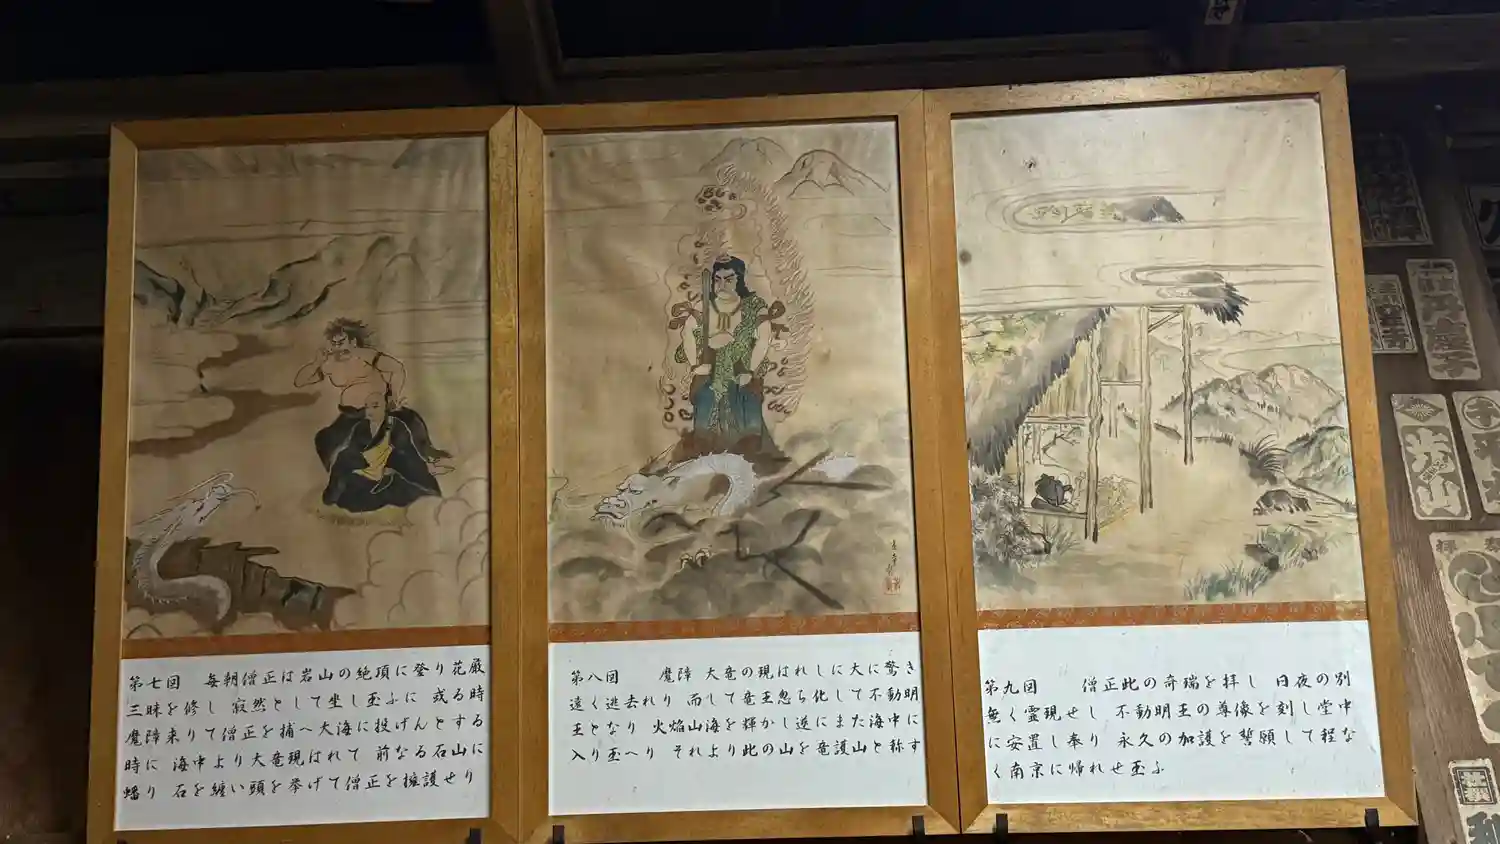 第七図 毎朝僧正は岩山の絶頂に登り花厳
三昧を修し 寂然として坐し玉ふに 或る時
魔障来りて僧正を捕へ大海に投げんとする
時に 海中より大竜現はれて 前なる石山に
蟠り 石を纏い頭を挙げて僧正を擁護せり
第八図 魔障 大竜の現はれしに大に驚き
遠く逃去れり 而して竜王忽ち化して不動明
王となり 火焔山海を輝かし遂にまた海中に
入り玉へり それより此の山を竜護山と称す
第九図 僧正此の奇瑞を拝し 日夜の別
無く霊現せし 不動明王の尊像を刻し堂中
に安置し奉り 永久の加護を誓願して程な
く南京に帰れせ玉ふ